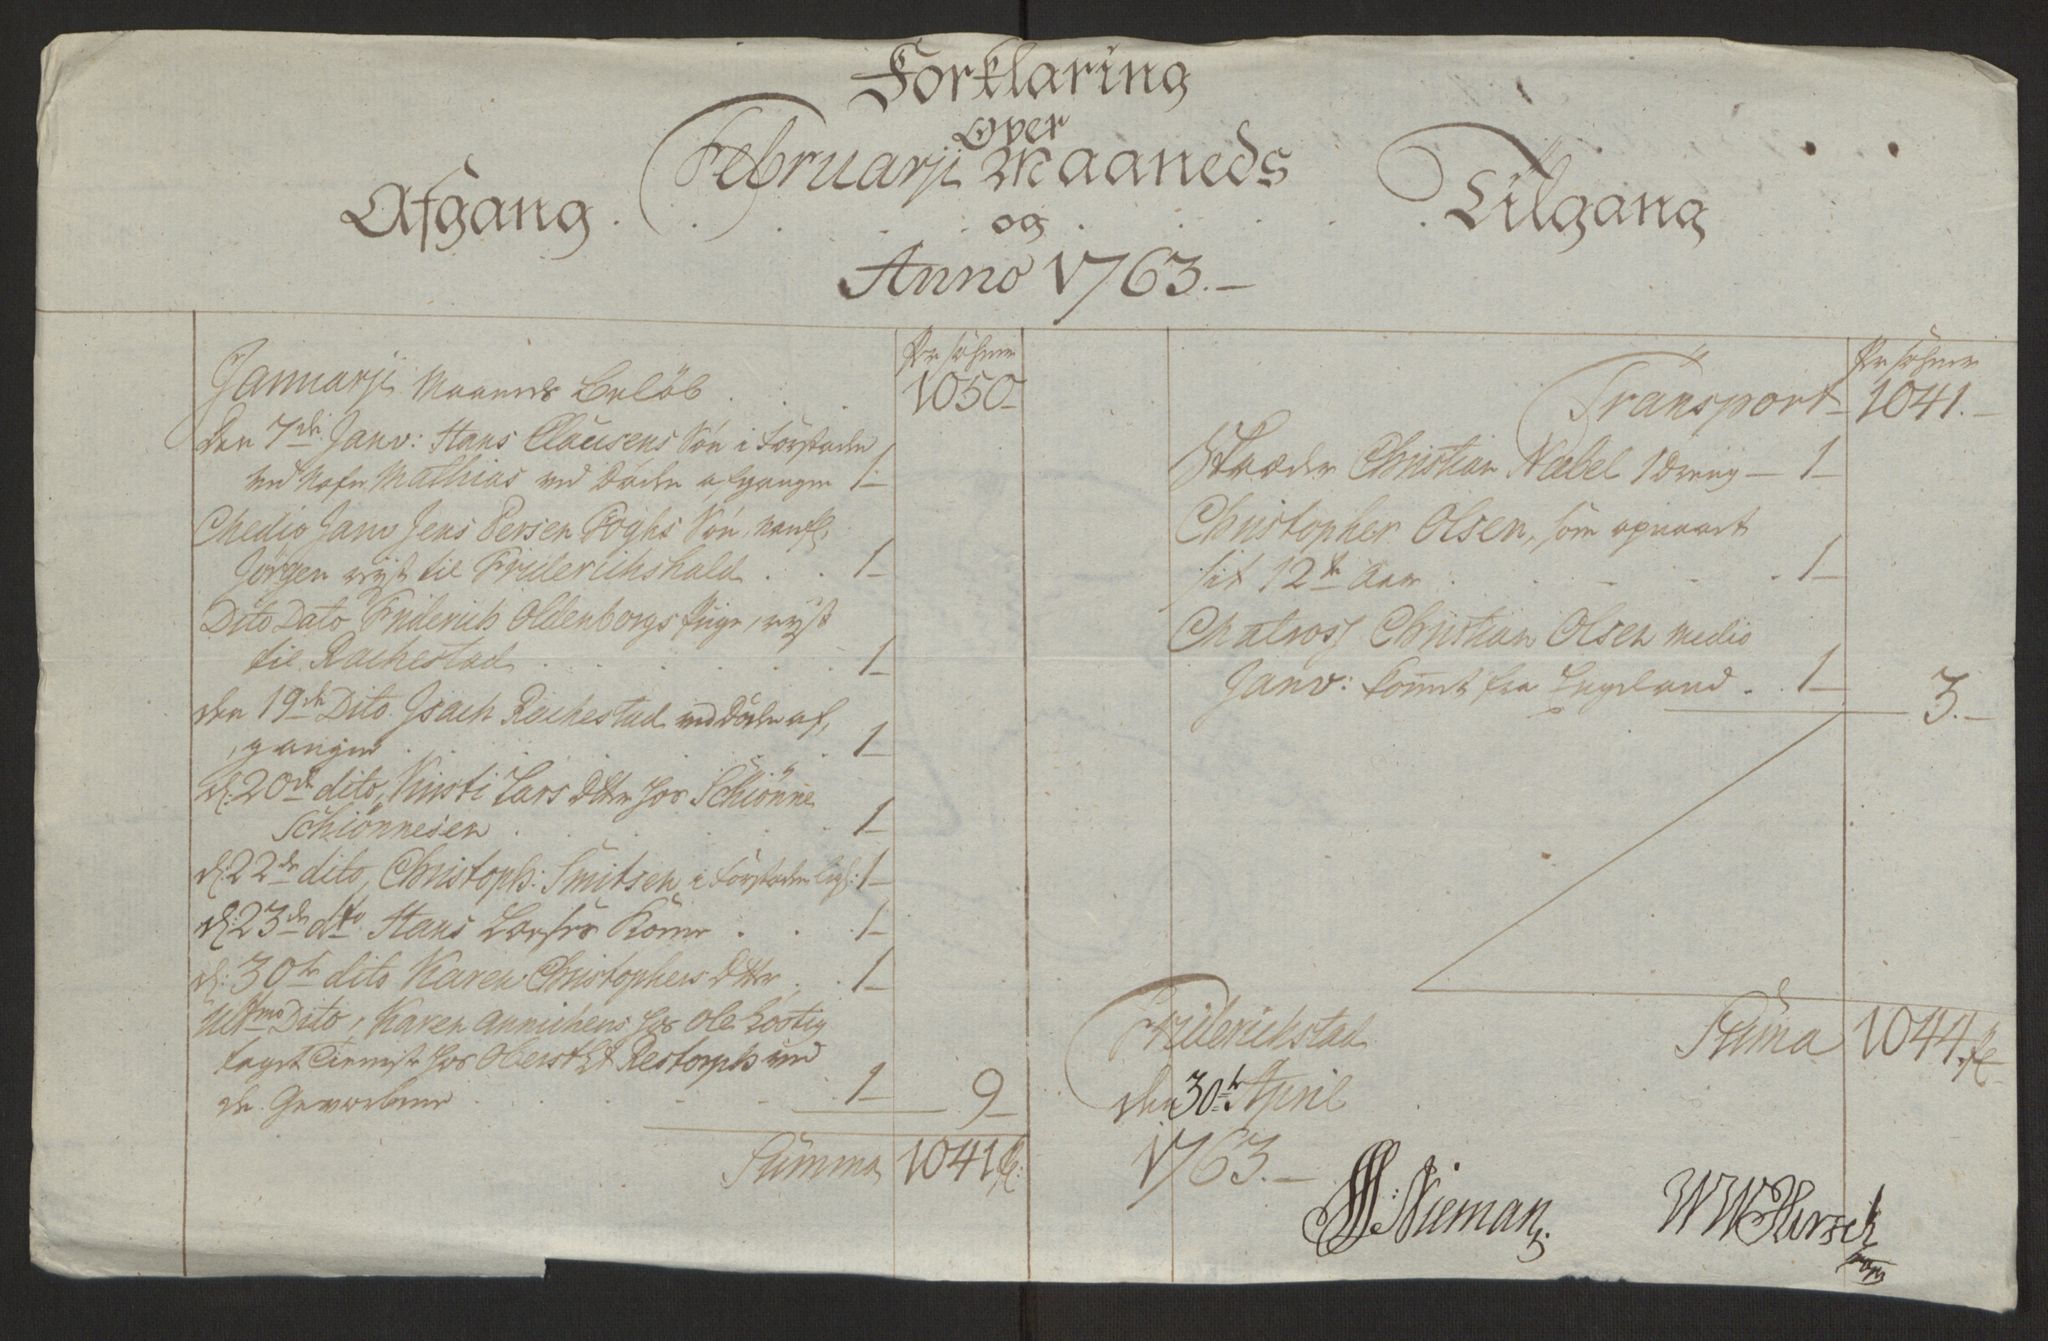 Forklaring
Over
Februarji Maaneds
Afgang og Tilgang
Anno 1763.
Persohner
Januarji Maaneds Beløb 1050
Den 7de Janv: Hans Clausens Søn i Forstaden
ved Nafn Mathias ved Døden afgangen 1
Medio Janv Jens Persen Foghs Søn, nanfl.
Jørgen rejst til Friderichshald 1
Dito Dato Friderich Oldenborgs Pige, rejst
til Rachestad 1
den 19de Dito Isach Rachestad ved Døden af,
gangen 1
d: 20de dito, Kirsti Lars Dttr hos Schiønne
Schiønnesen 1
d: 22de dito, Christoph: Smitsen i Forstaden lige: 1
d: 23de dto Hans Larses Kone 1
d: 30te dito Karen Christophers Dttr 1
Ultmo Dito, Karen Annichens hos Ole Lostig
taget Tieniste hos Oberst Lt Restorph ved
de Gevorbene 1 9
Summa 1041
Persohner
Transport 1041.
Skræder Christian Nabel 1 Dreng 1
Christopher Olsen, som opnaaet
sit 12te Aar 1
Matros Christian Olsen medio
Janv: kommet fra Engeland 1 3.
Suma 1044
Friderichstad
den 30te April
1763.
Nieman. W W Hirsch